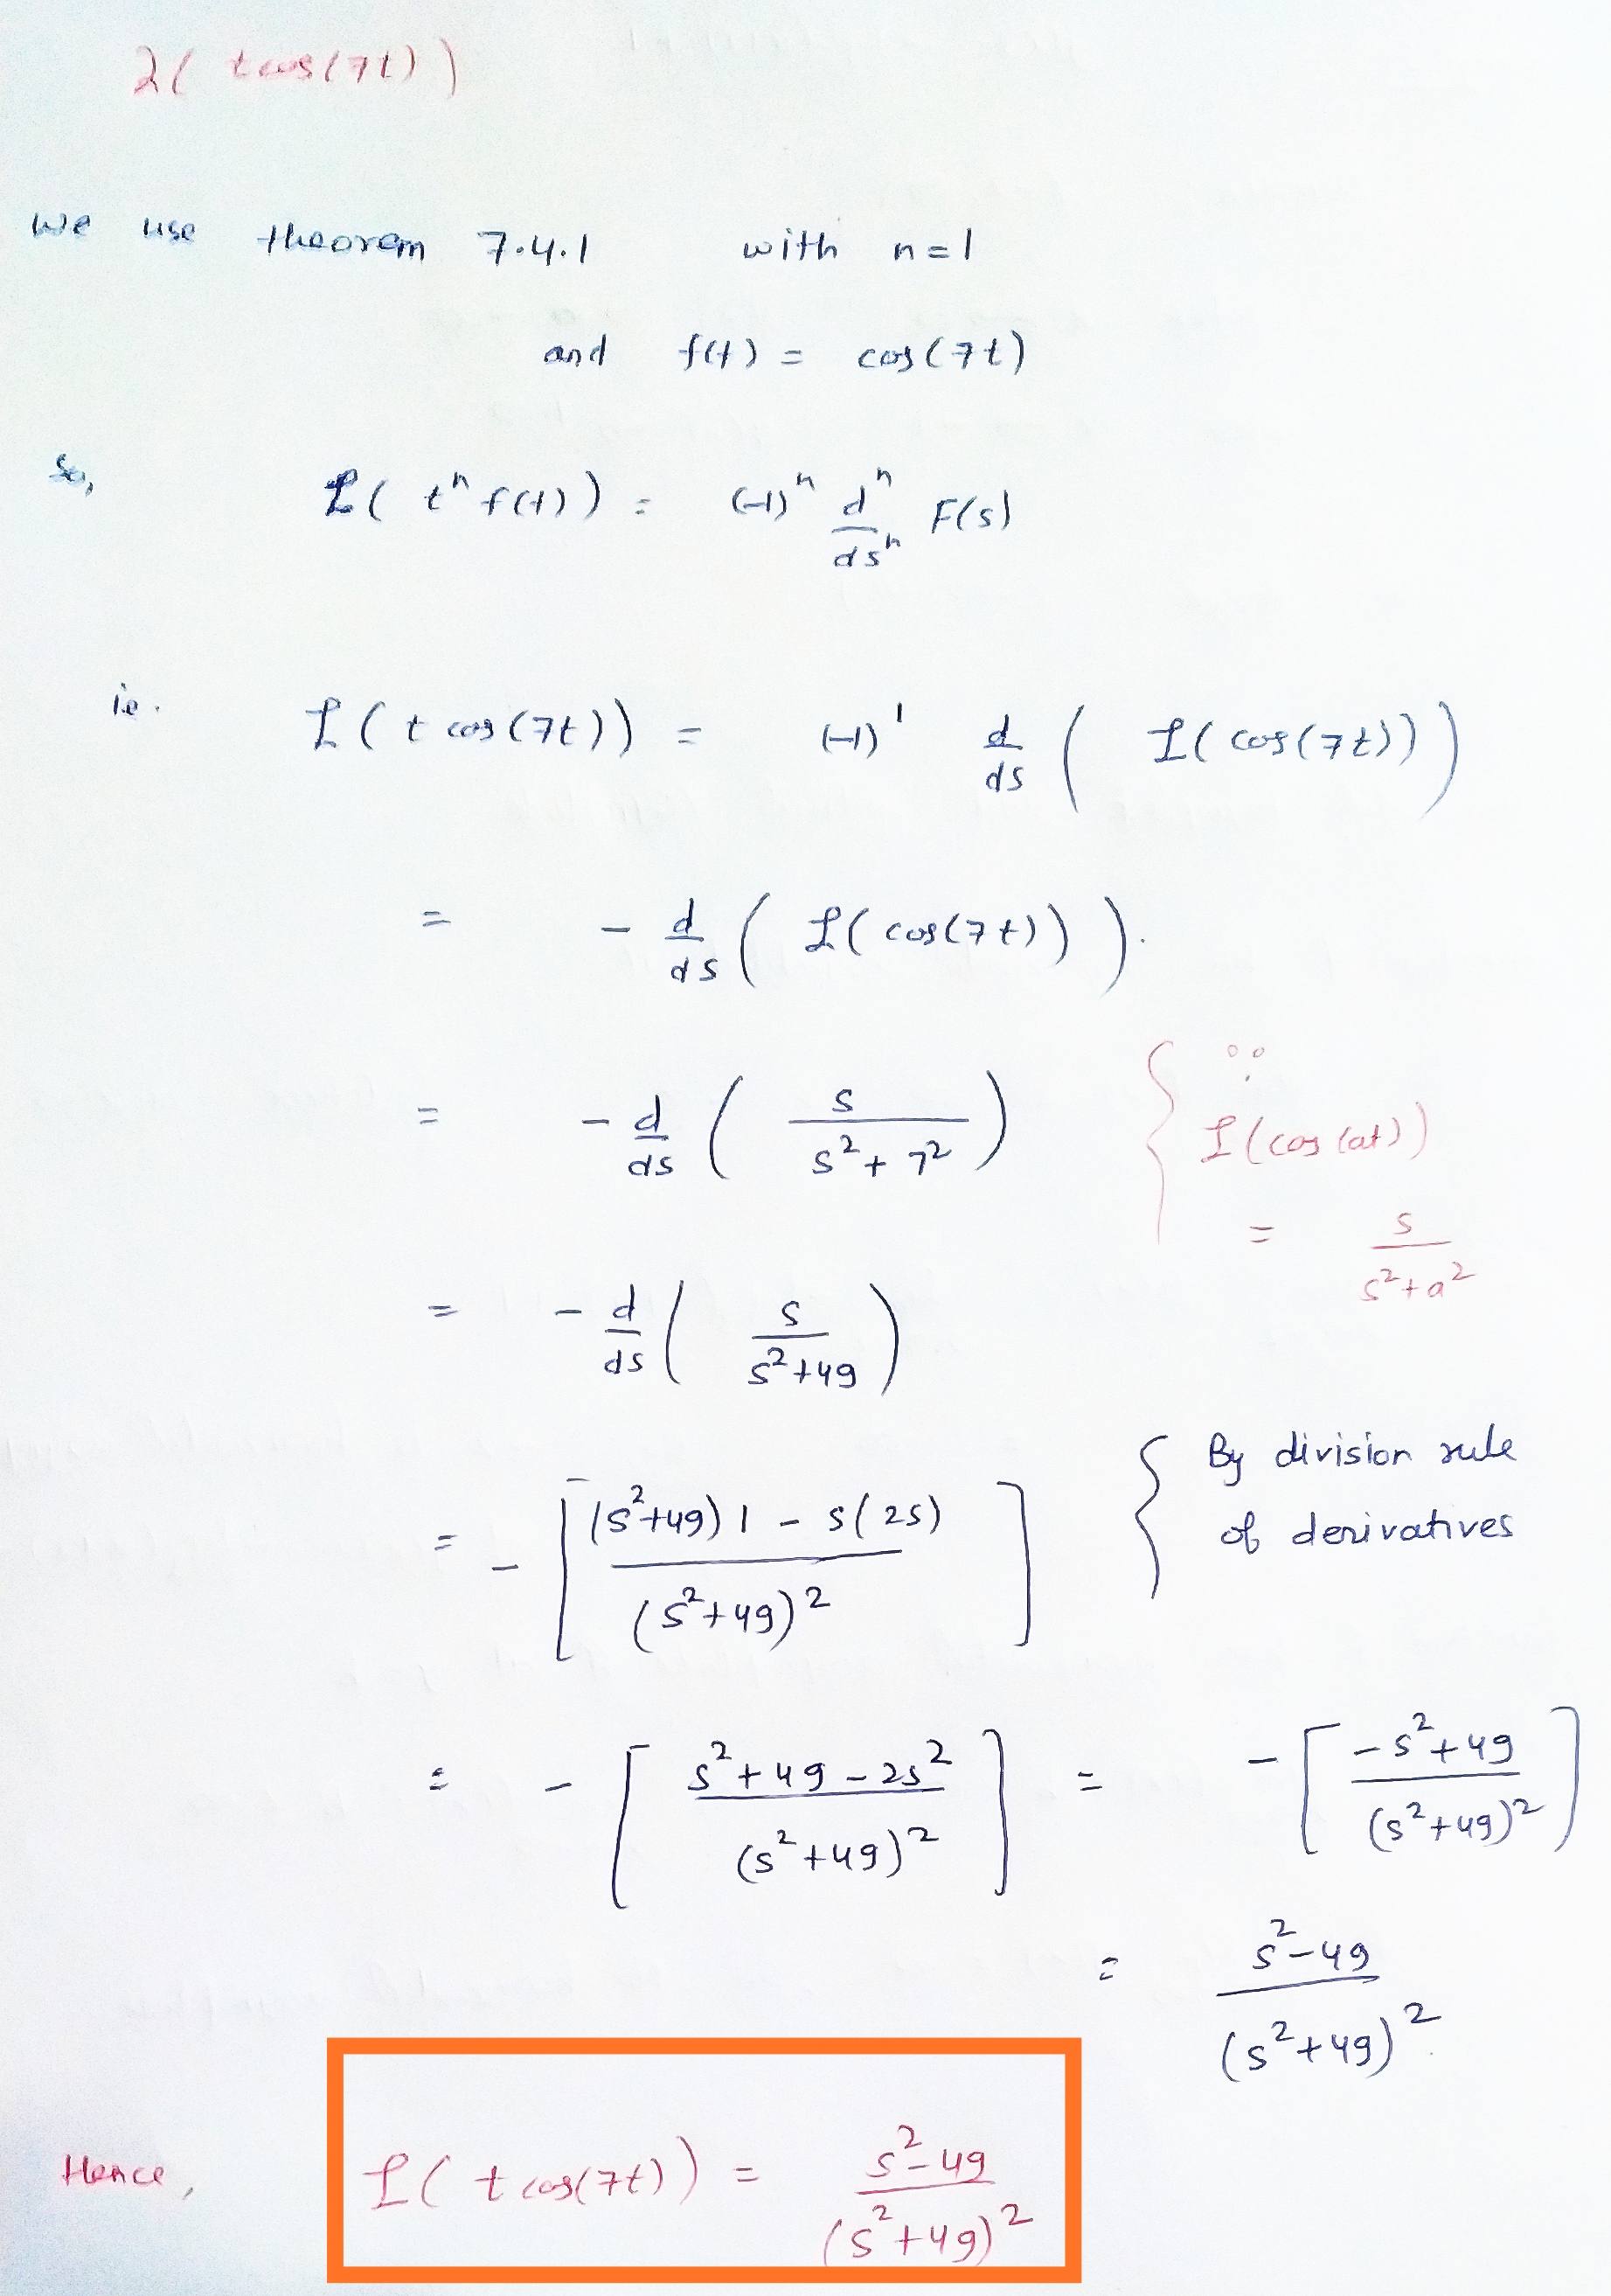 L( tcos(7t) )
We use theorem 7.4.1 with n=1
and f(t) = cos(7t)
So, L( tⁿ f(t) ) = (-1)ⁿ dⁿ/dsⁿ F(s)
ie. L( t cos(7t)) = (-1)¹ d/ds ( L( cos(7t)) )
= - d/ds ( L( cos(7t) ) ).
= - d/ds ( s / s²+7² ) { ∵ L(cos(at)) = s / s²+a²
= - d/ds ( s / s²+49 )
= - [ (s²+49) 1 - s(2s) / (s²+49)² ] { By division rule of derivatives
= - [ s²+49-2s² / (s²+49)² ] = - [ -s²+49 / (s²+49)² ]
= s²-49 / (s²+49)²
Hence, L( t cos(7t)) = s²-49 / (s²+49)²